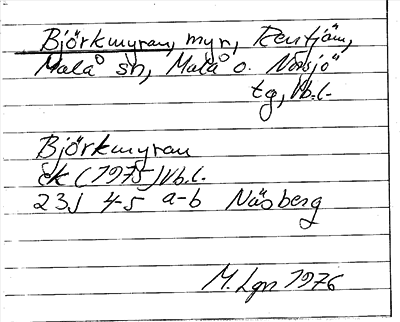 Björkmyran, myr, Rentjäm,
Malå sn, Malå o. Norsjö
tg, Vb.l.
Björkmyran
Ek (1975) Vb.l.
23J 4-5 a-b Näsberg
M. Lgn 1976